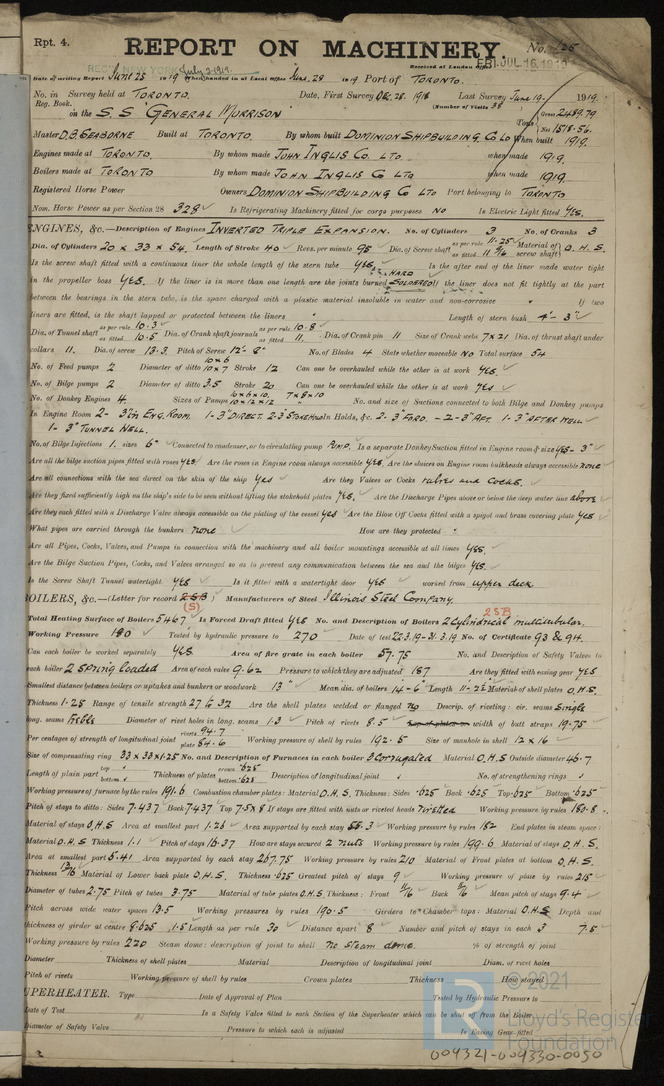 Rpt. 4.
REPORT ON MACHINERY.
No.
Received at London Office
JUL 16, 1919
Date of writing Report June 25 1919 When handed in at Local Office June 28 1919 Port of TORONTO.
July 2-1919.
No. in Survey held at TORONTO. Date, First Survey Dec. 28. 1918 Last Survey June 19 1919
Reg. Book. (Number of Visits 38
on the S.S "GENERAL MURRISON" Tons Gross 2489.79 Net 1518.56.
Master D.B. SEABORNE Built at TORONTO. By whom built DOMINION SHIPBUILDING Co Lo When built 1919.
Engines made at TORONTO. By whom made JOHN INGLIS Co. LTD when made 1919.
Boilers made at TORONTO By whom made JOHN INGLIS Co LTD when made 1919.
Registered Horse Power Owners DOMINION SHIPBUILDING Co LTD Port belonging to TORONTO
Nom. Horse Power as per Section 28 328 Is Refrigerating Machinery fitted for cargo purposes NO Is Electric Light fitted YES.
ENGINES, &c.—Description of Engines INVERTED TRIPLE EXPANSION. No. of Cylinders 3 No. of Cranks 3
Dia. of Cylinders 20 x 33 x 54 Length of Stroke 40 Revs. per minute 95 Dia. of Screw shaft as per rule 11.25 as fitted 11 9/16 Material of screw shaft O.H.S.
Is the screw shaft fitted with a continuous liner the whole length of the stern tube YES. Is the after end of the liner made water tight
in the propeller boss YES. If the liner is in more than one length are the joints burned HARD SOLDERED If the liner does not fit tightly at the part
between the bearings in the stern tube, is the space charged with a plastic material insoluble in water and non-corrosive " If two
liners are fitted, is the shaft lapped or protected between the liners Length of stern bush 4'-3"
Dia. of Tunnel shaft as per rule 10.3 as fitted 10.5 Dia. of Crank shaft journals as per rule 10.8 as fitted 11. Dia. of Crank pin 11 Size of Crank webs 7x21 Dia. of thrust shaft under
collars 11. Dia. of screw 13.3 Pitch of Screw 12'-8" No. of Blades 4 State whether moveable NO Total surface 54
No. of Feed pumps 2 Diameter of ditto 10x6 10x7 Stroke 12 Can one be overhauled while the other is at work YES.
No. of Bilge pumps 2 Diameter of ditto 3.5 Stroke 20 Can one be overhauled while the other is at work YES
No. of Donkey Engines 4. Sizes of Pumps 10x6x10, 7x8x10 10x12x12 No. and size of Suctions connected to both Bilge and Donkey pumps
In Engine Room 2-3" in ENG. ROOM. 1-3" DIRECT. 2-3" STOKEHOLD In Holds, &c. 2-3" FORD. - 2-3" AFT. 1-3" AFTER WELL
1-3" TUNNEL WELL.
No. of Bilge Injections 1. sizes 6" Connected to condenser, or to circulating pump PUMP. Is a separate Donkey Suction fitted in Engine room & size YES-3"
Are all the bilge suction pipes fitted with roses YES Are the roses in Engine room always accessible YES. Are the sluices on Engine room bulkheads always accessible none
Are all connections with the sea direct on the skin of the ship Yes Are they Valves or Cocks valves and cocks.
Are they fixed sufficiently high on the ship's side to be seen without lifting the stokehold plates yes. Are the Discharge Pipes above or below the deep water line above
Are they each fitted with a Discharge Valve always accessible on the plating of the vessel yes Are the Blow Off Cocks fitted with a spigot and brass covering plate yes
What pipes are carried through the bunkers none How are they protected "
Are all Pipes, Cocks, Valves, and Pumps in connection with the machinery and all boiler mountings accessible at all times yes.
Are the Bilge Suction Pipes, Cocks, and Valves arranged so as to prevent any communication between the sea and the bilges yes.
Is the Screw Shaft Tunnel watertight yes Is it fitted with a watertight door yes worked from upper deck
BOILERS, &c.—(Letter for record 2SB (S)) Manufacturers of Steel Illinois Steel Company.
2SB
Total Heating Surface of Boilers 5467 Is Forced Draft fitted yes No. and Description of Boilers 2 Cylindrical multitubular.
Working Pressure 180 Tested by hydraulic pressure to 270 Date of test 22.3.19-31.3.19 No. of Certificate 93 & 94.
Can each boiler be worked separately yes Area of fire grate in each boiler 57.75 No. and Description of Safety Valves to
each boiler 2 Spring loaded Area of each valve 9.62 Pressure to which they are adjusted 187 Are they fitted with easing gear yes
Smallest distance between boilers or uptakes and bunkers or woodwork 13" Mean dia. of boilers 14-6" Length 11-2 1/2 Material of shell plates O.H.S.
Thickness 1.25 Range of tensile strength 27 to 32 Are the shell plates welded or flanged no Descrip. of riveting: cir. seams single
long. seams treble Diameter of rivet holes in long. seams 1.3 Pitch of rivets 8.5 width of butt straps 19.75
Per centages of strength of longitudinal joint rivets 94.7 plate 84.6 Working pressure of shell by rules 192.5 Size of manhole in shell 12 x 16
Size of compensating ring 33x33x1.25 No. and Description of Furnaces in each boiler 3 Corrugated Material O.H.S Outside diameter 46.7
Length of plain part top bottom Thickness of plates crown .625 bottom .625 Description of longitudinal joint No. of strengthening rings
Working pressure of furnace by the rules 191.6 Combustion chamber plates: Material O.H.S. Thickness: Sides .625 Back .625 Top .625 Bottom .625
Pitch of stays to ditto: Sides 7.437 Back 7.437 Top 7.5x8 If stays are fitted with nuts or riveted heads riveted Working pressure by rules 180.8
Material of stays O.H.S Area at smallest part 1.26 Area supported by each stay 55.3 Working pressure by rules 182 End plates in steam space:
Material O.H.S Thickness 1.1 Pitch of stays 16.37 How are stays secured 2 nuts Working pressure by rules 199.6 Material of stays O.H.S.
Area at smallest part 5.41 Area supported by each stay 267.75 Working pressure by rules 210 Material of Front plates at bottom O.H.S.
Thickness 13/16 Material of Lower back plate O.H.S. Thickness .625 Greatest pitch of stays 9 Working pressure of plate by rules 215
Diameter of tubes 2.75 Pitch of tubes 3.75 Material of tube plates O.H.S. Thickness: Front 11/16 Back 11/16 Mean pitch of stays 9.4
Pitch across wide water spaces 13.5 Working pressures by rules 190.5 Girders to Chamber tops: Material O.H.S Depth and
thickness of girder at centre 8.625 1.5 Length as per rule 30 Distance apart 8 Number and pitch of stays in each 3 7.5
Working pressure by rules 220 Steam dome: description of joint to shell no steam dome. % of strength of joint
Diameter Thickness of shell plates Material Description of longitudinal joint Diam. of rivet holes
Pitch of rivets Working pressure of shell by rules Crown plates Thickness How stayed
SUPERHEATER. Type Date of Approval of Plan Tested by Hydraulic Pressure to
Date of Test Is a Safety Valve fitted to each Section of the Superheater which can be shut off from the Boiler
Diameter of Safety Valve Pressure to which each is adjusted Is Easing Gear fitted
© 2021
Lloyd's Register
Foundation
004321-004330-0050